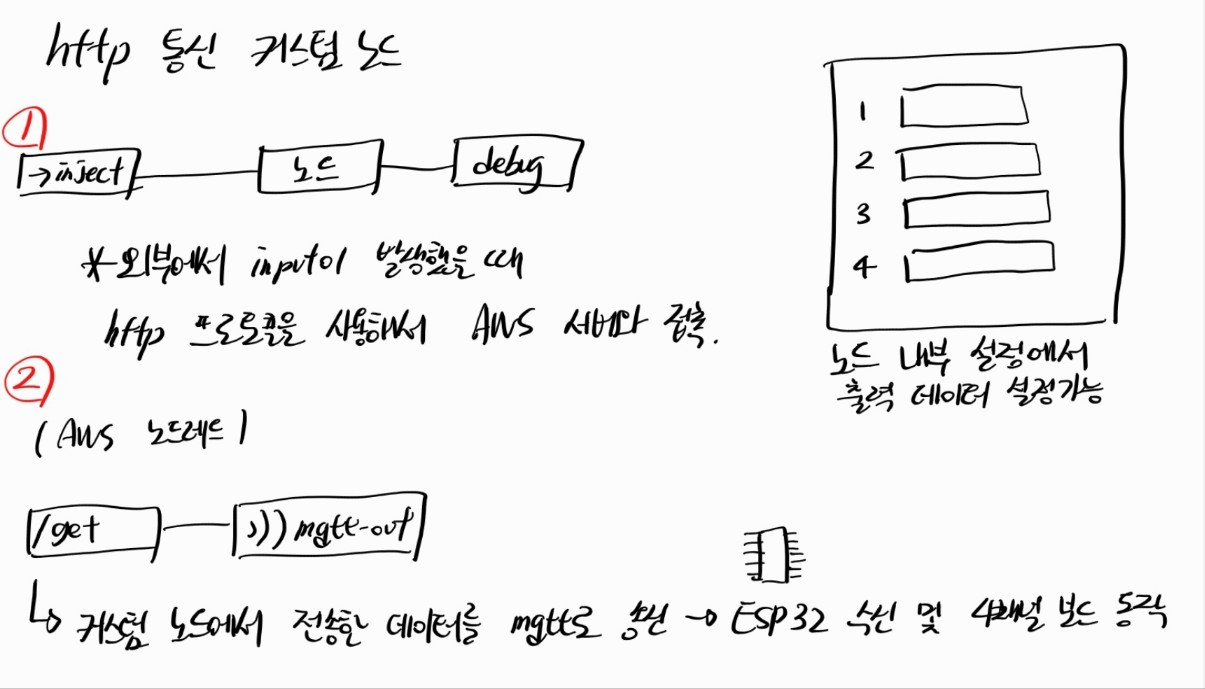 http 통신 커스텀 노드
①
→inject
노드
debug
*외부에서 input이 발생했을 때
http 프로토콜을 사용해서 AWS 서버와 접촉.
1
2
3
4
노드 내부 설정에서
출력 데이터 설정가능
②
(AWS 노드레드)
/get
))) mqtt-out
↳ 커스텀 노드에서 전송한 데이터를 mqtt로 송신 → ESP32 수신 및 4채널 보드 동작